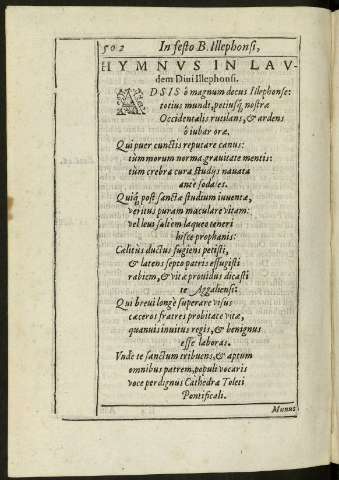 502 In festo B. Illephonsi,
HYMNVS IN LAV-
dem Diui Illephonsi.
ADSIS ô magnum decus Illephonse:
totius mundi, potiusq; nostræ
Occidentalis rutilans, & ardens
ô iubar oræ.
Qui puer cunctis reputare canus:
tùm morum norma grauitate mentis:
tùm crebra cura studijs nauata
ante sodales.
Quiq; post sanctæ studium iuuentæ,
veritus puram maculare vitam:
vel leui saltem laqueo teneri
hisce prophanis:
Cælitus ductus fugiens petisti,
& latens septo patris effugisti
rabiem, & vitæ prouidus dicasti
te Aggaliensi:
Qui breui longè superare visus
cæteros fratres probitate vitæ,
quanuis inuitus regis, & benignus
esse laboras.
Vnde te sanctum tribuens, & aptum
omnibus patrem, populi vocaris
voce perdignus Cathedra Toleti
Pontificali.
Munus